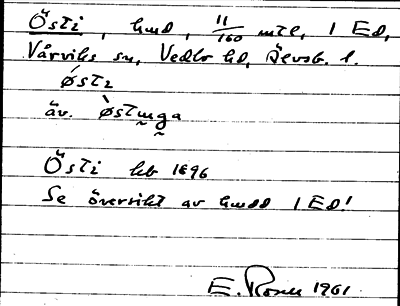 Östi, hmd, 11/160 mtl, I Ed,
Vårviks sn, Vedbo hd, Älvsb. l.
ǿstɩ
äv. østɩŋa
Östi hb 1696
Se översikt av hmdd I Ed!
E. Rosén 1961